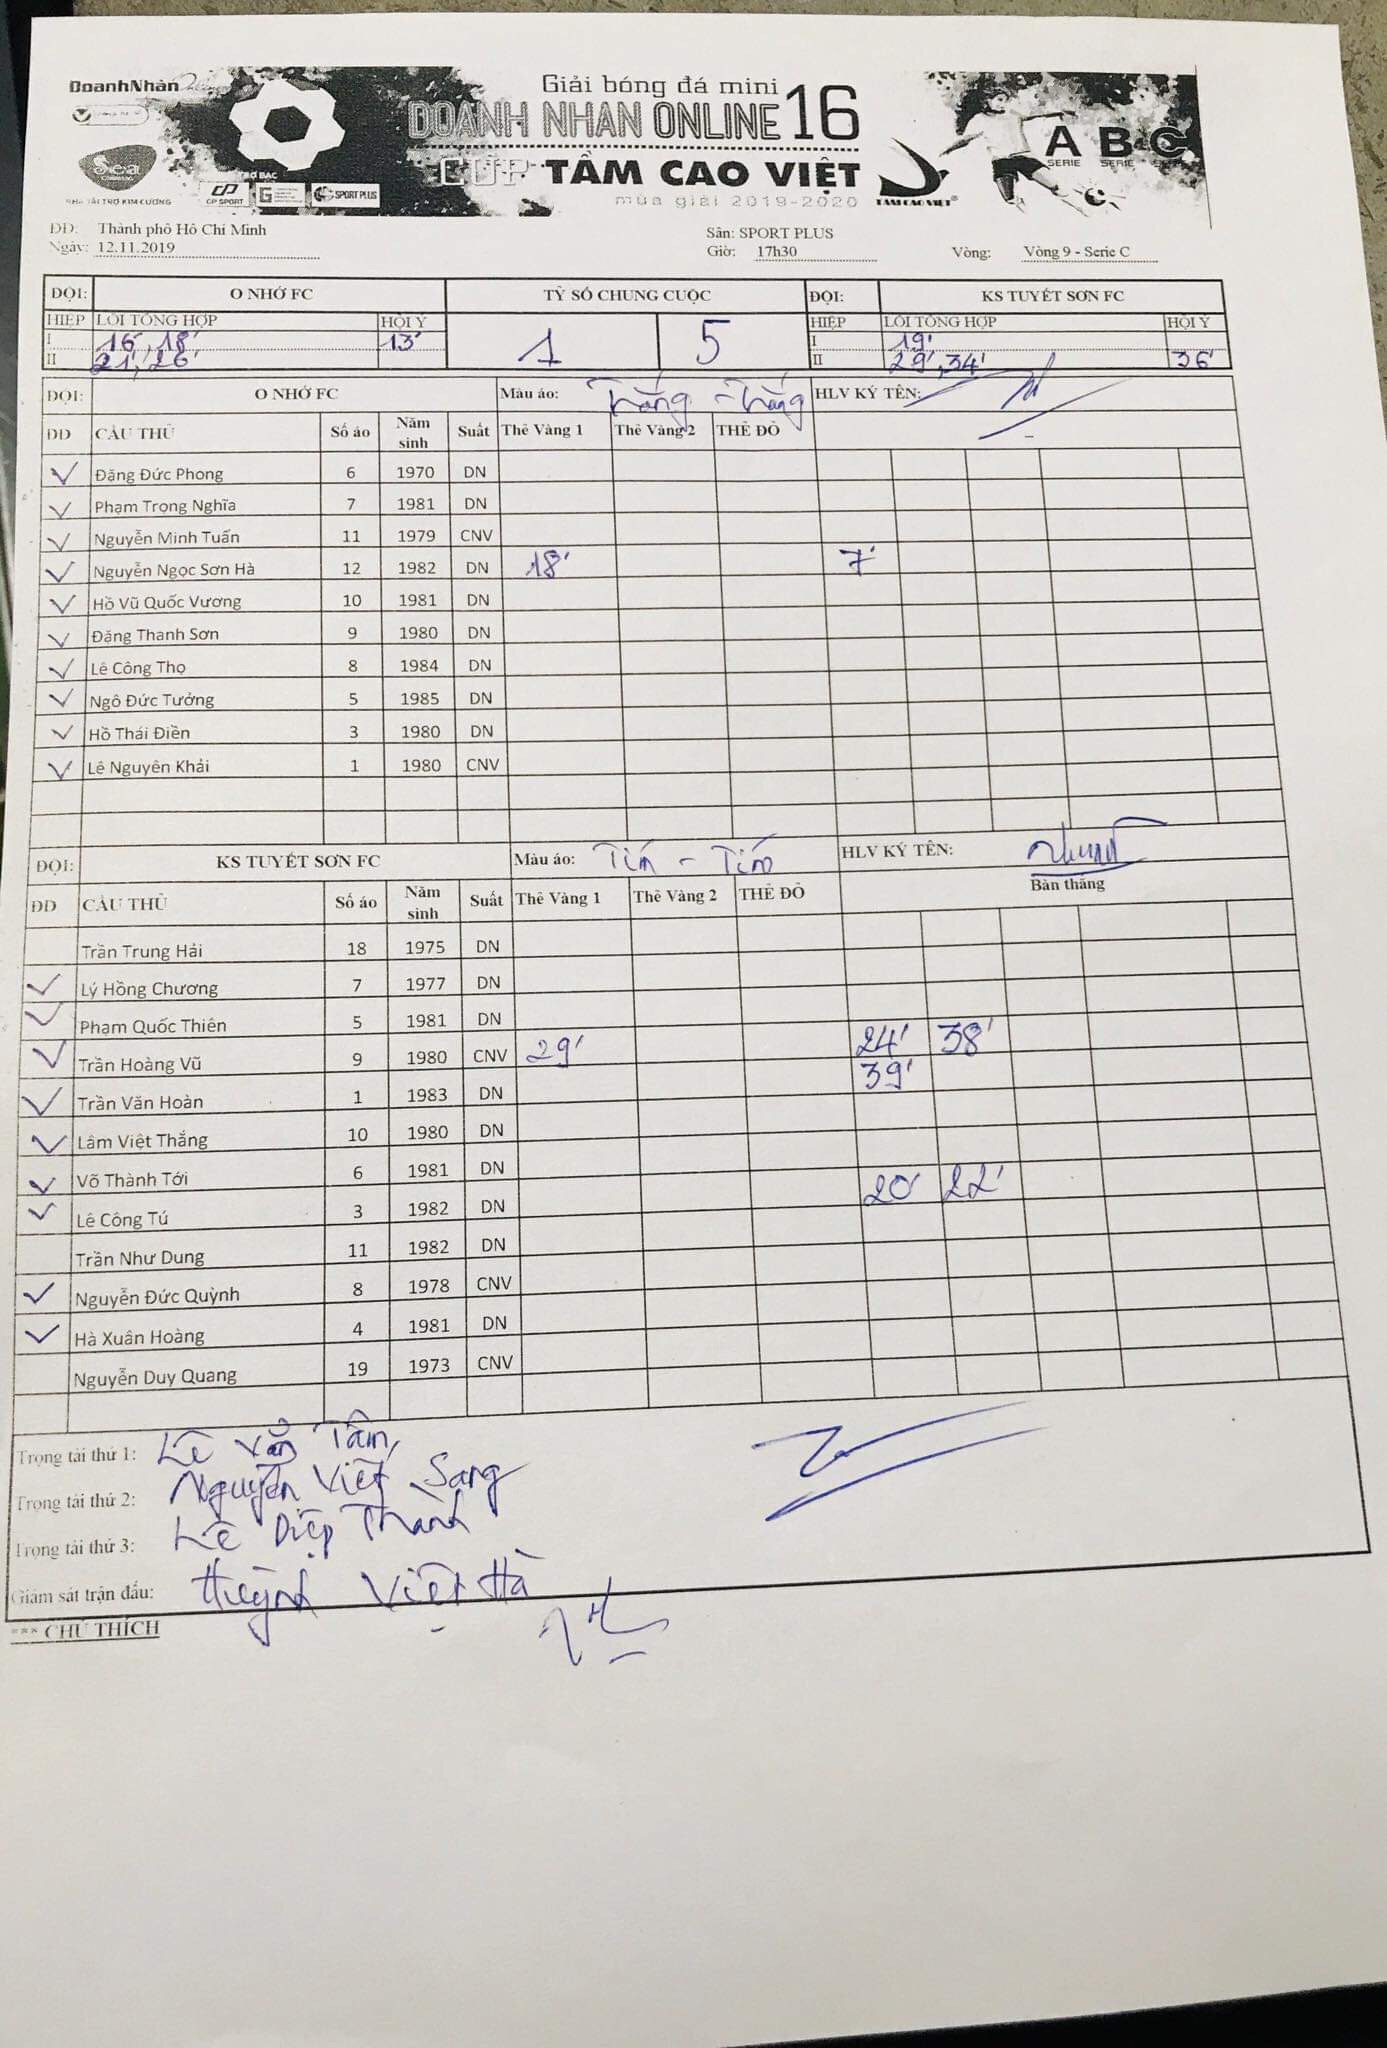 DoanhNhân
Giải bóng đá mini
DOANH NHAN ONLINE 16
CUP TẦM CAO VIỆT
mùa giải 2019-2020
NHÀ TÀI TRỢ KIM CƯƠNG
CP SPORT
SPORT PLUS
TẦM CAO VIỆT
A B C
SERIE SERIE
ĐĐ: Thành phô Hô Chí Minh Sân: SPORT PLUS
Ngày: 12.11.2019 Giờ: 17h30 Vòng: Vòng 9 - Serie C
ĐỘI: O NHỚ FC TỶ SỐ CHUNG CUỘC ĐỘI: KS TUYẾT SƠN FC
HIỆP LỖI TỔNG HỢP HỘI Ý 1 5 HIỆP LỖI TỔNG HỢP HỘI Ý
I 16', 18' 13' I 19'
II 21', 26' II 29', 34' 36'
ĐỘI: O NHỚ FC Màu áo: Trắng - Trắng HLV KÝ TÊN:
ĐD CẦU THỦ Số áo Năm sinh Suất Thẻ Vàng 1 Thẻ Vàng 2 THẺ ĐỎ
Đặng Đức Phong 6 1970 DN
Phạm Trọng Nghĩa 7 1981 DN
Nguyễn Minh Tuấn 11 1979 CNV
Nguyễn Ngọc Sơn Hà 12 1982 DN 18' 7'
Hồ Vũ Quốc Vương 10 1981 DN
Đặng Thanh Sơn 9 1980 DN
Lê Công Thọ 8 1984 DN
Ngô Đức Tưởng 5 1985 DN
Hồ Thái Điền 3 1980 DN
Lê Nguyên Khải 1 1980 CNV
ĐỘI: KS TUYẾT SƠN FC Màu áo: Tím - Tím HLV KÝ TÊN:
ĐD CẦU THỦ Số áo Năm sinh Suất Thẻ Vàng 1 Thẻ Vàng 2 THẺ ĐỎ Bàn thắng
Trần Trung Hải 18 1975 DN
Lý Hồng Chương 7 1977 DN
Phạm Quốc Thiên 5 1981 DN
Trần Hoàng Vũ 9 1980 CNV 29' 24' 38'
39'
Trần Văn Hoàn 1 1983 DN
Lâm Việt Thắng 10 1980 DN
Võ Thành Tới 6 1981 DN
Lê Công Tú 3 1982 DN 20' 22'
Trần Như Dung 11 1982 DN
Nguyễn Đức Quỳnh 8 1978 CNV
Hà Xuân Hoàng 4 1981 DN
Nguyễn Duy Quang 19 1973 CNV
Trọng tài thứ 1: Lê Văn Tâm
Trọng tài thứ 2: Nguyễn Viết Sang
Trọng tài thứ 3: Lê Diệp Thành
Giám sát trận đấu: Huỳnh Việt Hà
*** CHÚ THÍCH